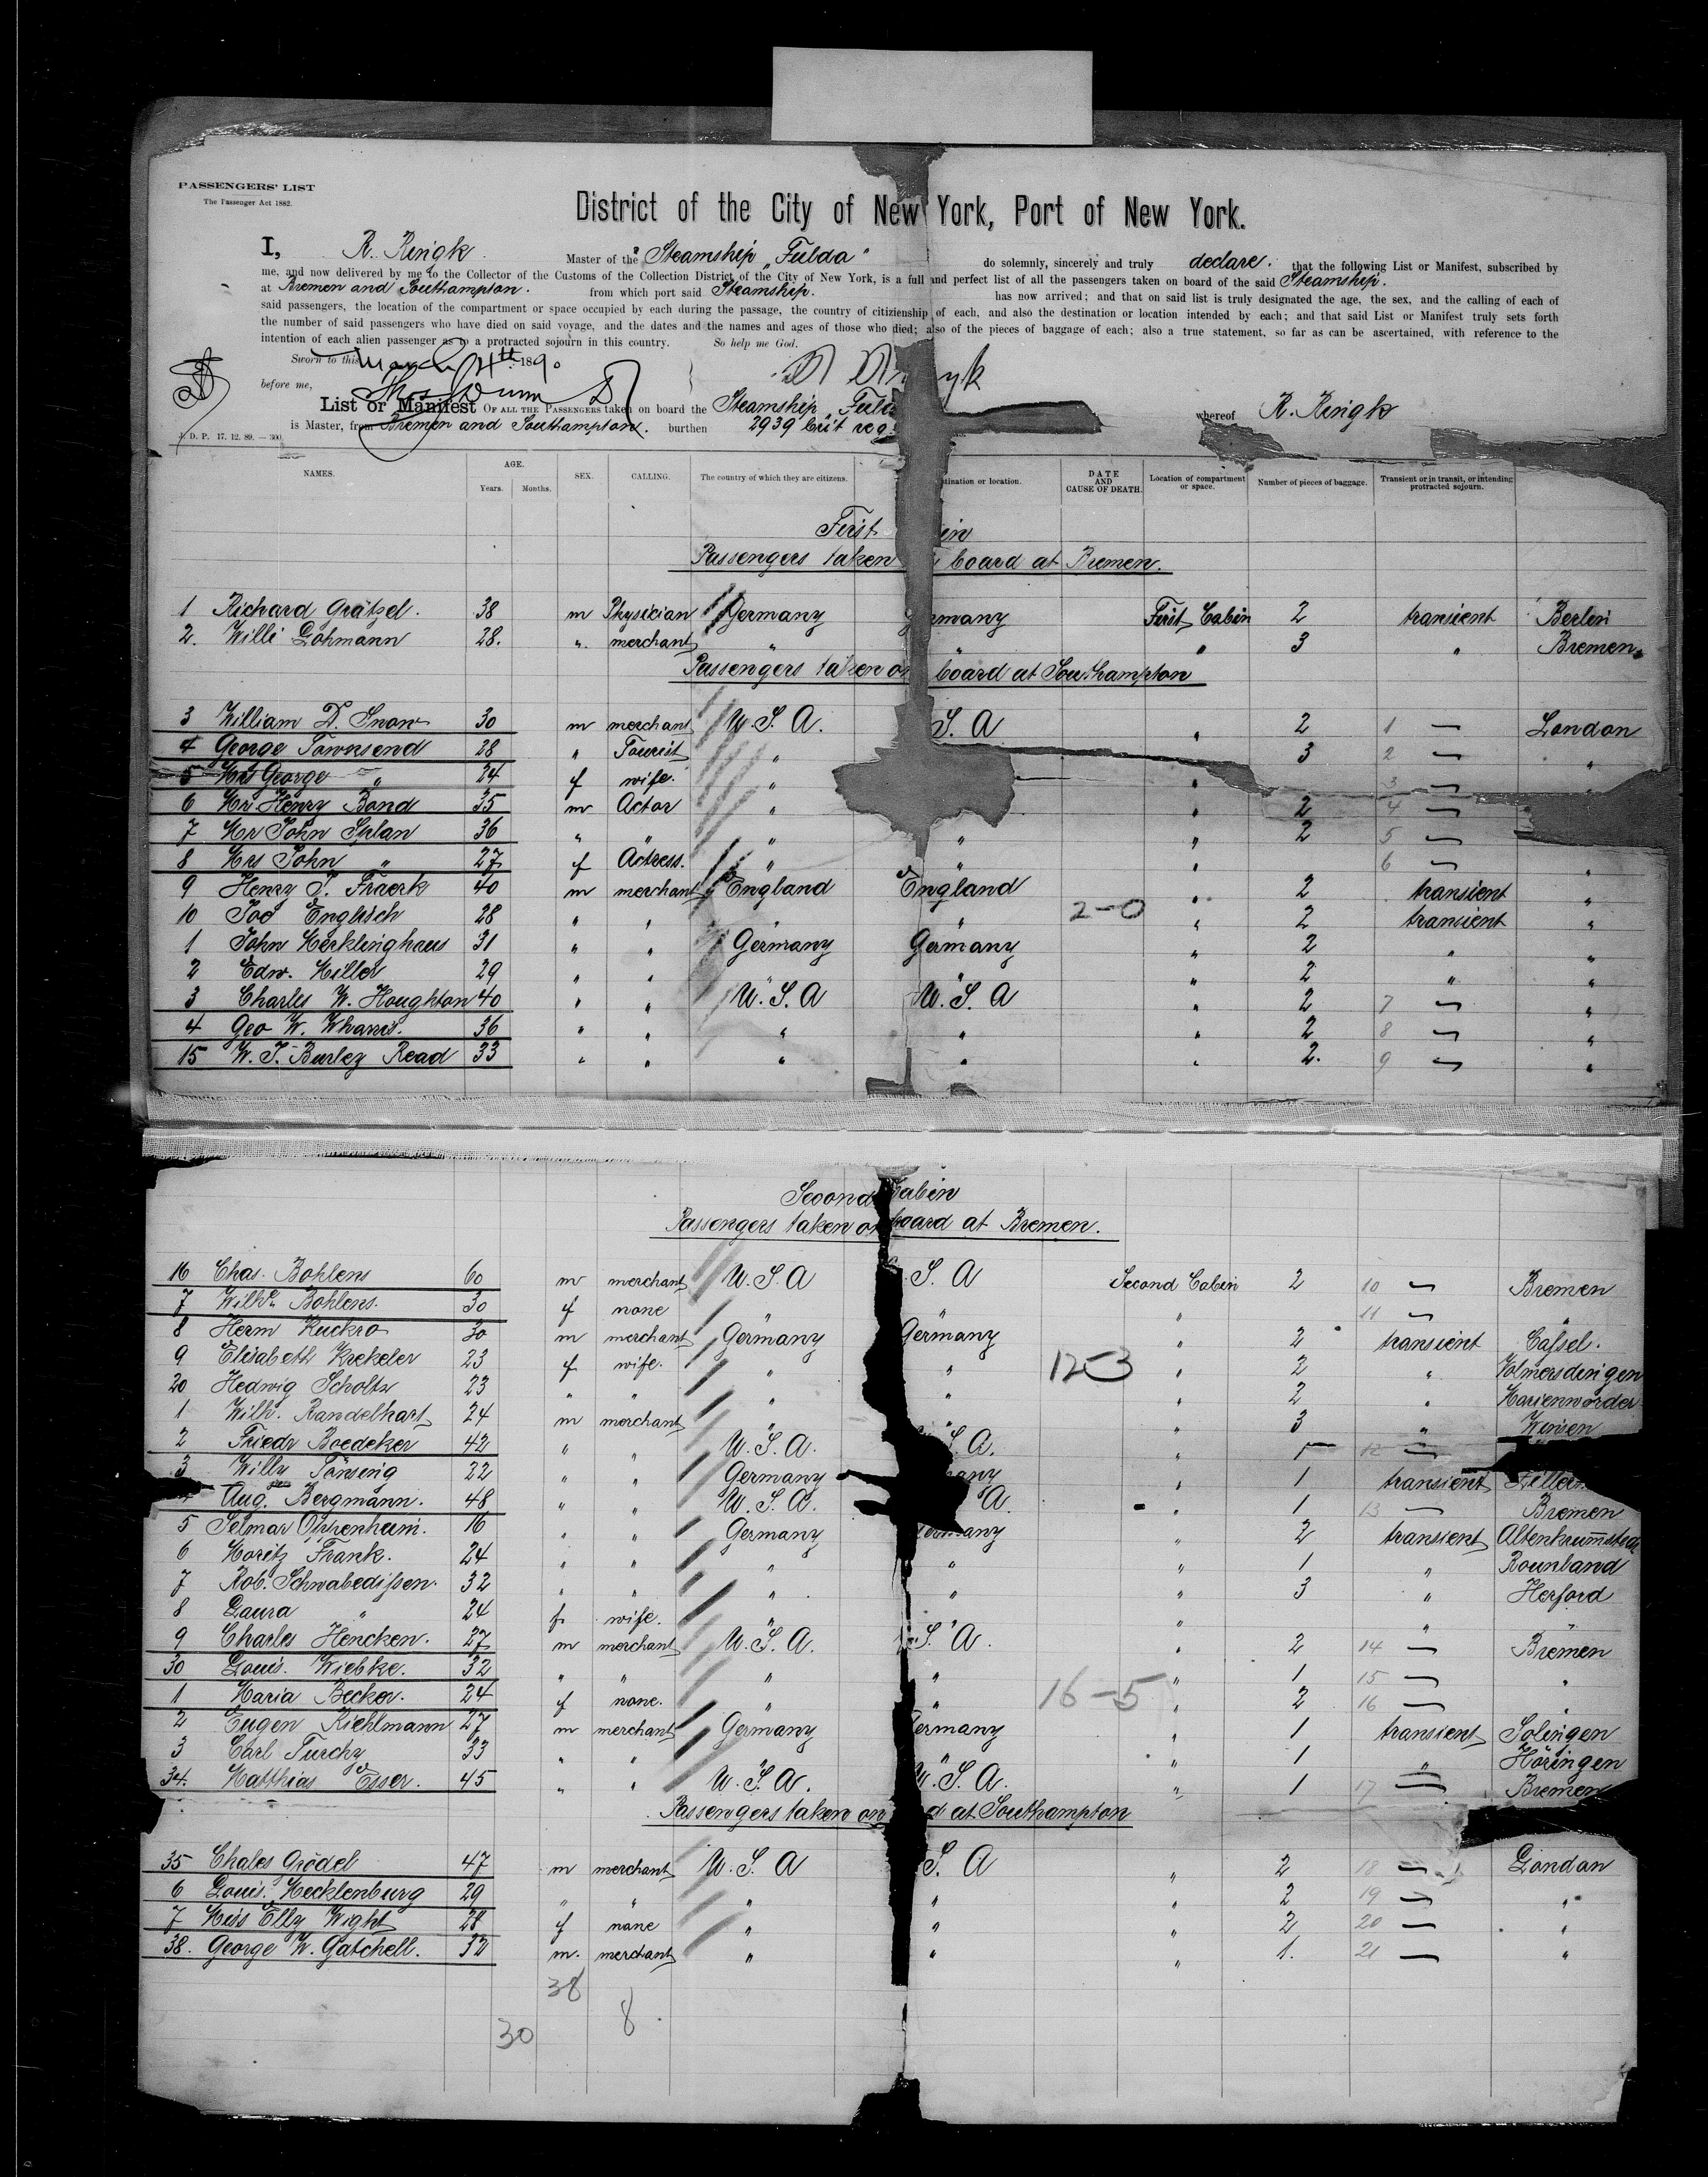 PASSENGERS' LIST
The Passenger Act 1882.
District of the City of New York, Port of New York.
I, R. Ringk Master of the Steamship „Fulda" do solemnly, sincerely and truly declare. that the following List or Manifest, subscribed by
me, and now delivered by me to the Collector of the Customs of the Collection District of the City of New York, is a full and perfect list of all the passengers taken on board of the said Steamship.
at Bremen and Southampton. from which port said Steamship. has now arrived; and that on said list is truly designated the age, the sex, and the calling of each of
said passengers, the location of the compartment or space occupied by each during the passage, the country of citizienship of each, and also the destination or location intended by each; and that said List or Manifest truly sets forth
the number of said passengers who have died on said voyage, and the dates and the names and ages of those who died; also of the pieces of baggage of each; also a true statement, so far as can be ascertained, with reference to the
intention of each alien passenger as to a protracted sojourn in this country. So help me God.
Sworn to this March 4th 1890
before me,
List or Manifest OF ALL THE PASSENGERS taken on board the Steamship „Fulda whereof R. Ringk
is Master, from Bremen and Southampton. burthen 2939 brit reg
D. P. 17. 12. 89. — 300.
NAMES. AGE. Years. Months. SEX. CALLING. The country of which they are citizens. tination or location. DATE AND CAUSE OF DEATH. Location of compartment or space. Number of pieces of baggage. Transient or in transit, or intending protracted sojourn.
First in
Passengers taken board at Bremen.
1 Richard Grätzel. 38 m Physician Germany rmany First Cabin 2 transient Berlin
2. Willi Lohmann 28. " merchant " " " 3 " Bremen
Passengers taken on board at Southampton
3 William D. Snow 30 m merchant U. S. A. S. A " 2 1 — London
4 George Townsend 28 " Tourist " " 3 2 — "
5 Mrs George " 24 f wife. " " 3 — "
6 Mr Henry Bond 35 m Actor " " 2 4 —
7 Mr John Splan 36 " " " " " 2 5 —
8 Mrs John " 27 f Actress. " " " 6 — "
9 Henry J. Fraerk 40 m merchant England England " 2 transient "
10 Joe Englisch 28 " " " " 2-0 " 2 transient "
1 John Herklinghaus 31 " " Germany Germany " 2 " "
2 Edw. Hiller 29 " " " " " 2 " "
3 Charles W. Houghton 40 " " U. S. A U. S. A " 2 7 — "
4 Geo W. Wharris. 36 " " " " " 2 8 — "
15 W. J. Burley Read 33 " " " " " 2. 9 — "
Second Cabin
Passengers taken on board at Bremen.
16 Chas. Bohlens 60 m merchant U. S. A S. A Second Cabin 2 10 — Bremen
7 Wilhe Bohlens. 30 f none " " " 11 — "
8 Herm Kuckro 30 m merchant Germany Germany " 2 transient Cassel.
9 Elisabeth Krekeler 23 f wife. " " 12-3 " 2 " Volmersdingen
20 Hedwig Scholtz 23 " " " " " 2 " Marienwörder
1 Wilh. Randelhart 24 m merchant " " " 3 " Winsen
2 Friedr Boedeker 42 " " U. S. A. S. A. " 1 12 —
3 Willy Tönsing 22 " " Germany many " 1 transient
Aug. Bergmann. 48 " " U. S. A. A. " 1 13 — Bremen
5 Selmar Oppenheim. 16 " " Germany Germany " 2 transient Altenkunstadt
6 Moritz Frank. 24 " " " " " 1 "
7 Rob. Schwabedissen. 32 " " " " " 3 " Herford
8 Laura " 24 f. wife. " " " " "
9 Charles Hencken. 27 m merchant U. S. A. S. A. " 2 14 — Bremen
30 Louis. Wiebke. 32 " " " " " 1 15 — "
1 Maria Becker. 24 f none. " " 16-5 " 2 16 — "
2 Eugen Kiehlmann 27 m merchant Germany Germany " 1 transient Solingen
3 Carl Turchy 33 " " " " " 1 " Höringen
34. Matthias Esser. 45 " " U. S. A. U. S. A. " 1 17 — Bremen
Passengers taken on d at Southampton
35 Chales Grödel 47 m merchant U. S. A S. A " 2 18 — London
6 Louis. Mecklenburg 29 " " " " " 2 19 — "
7 Miss Elly Wight 28 f none " " " 2 20 — "
38. George W. Gatchell. 32 m. merchant " " " 1. 21 — "
38
30 8